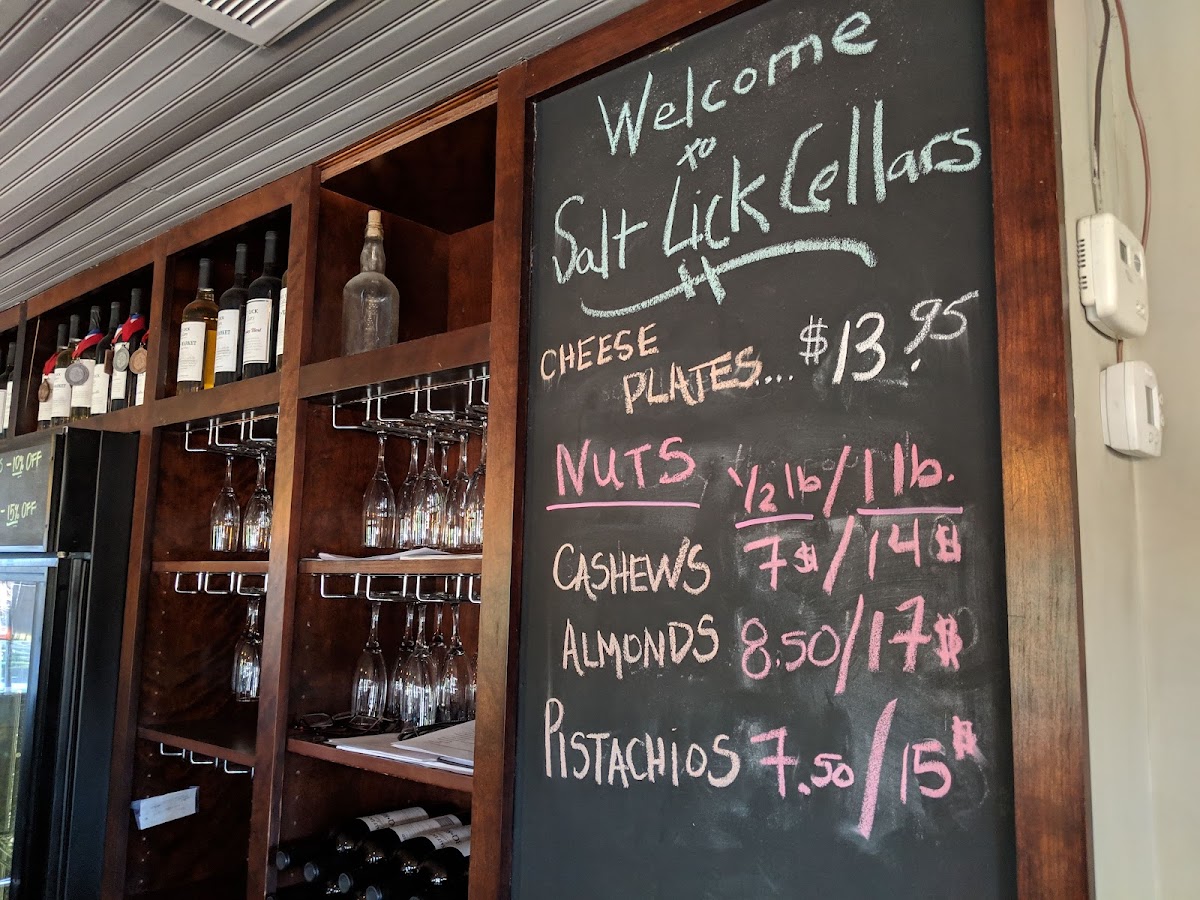 Welcome
to
Salt Lick Cellars
CHEESE
PLATES.... $13.95
NUTS 1/2 lb/1 lb.
CASHEWS 7$/14$
ALMONDS 8.50/17$
PISTACHIOS 7.50/15$
-10% OFF
- 15% OFF